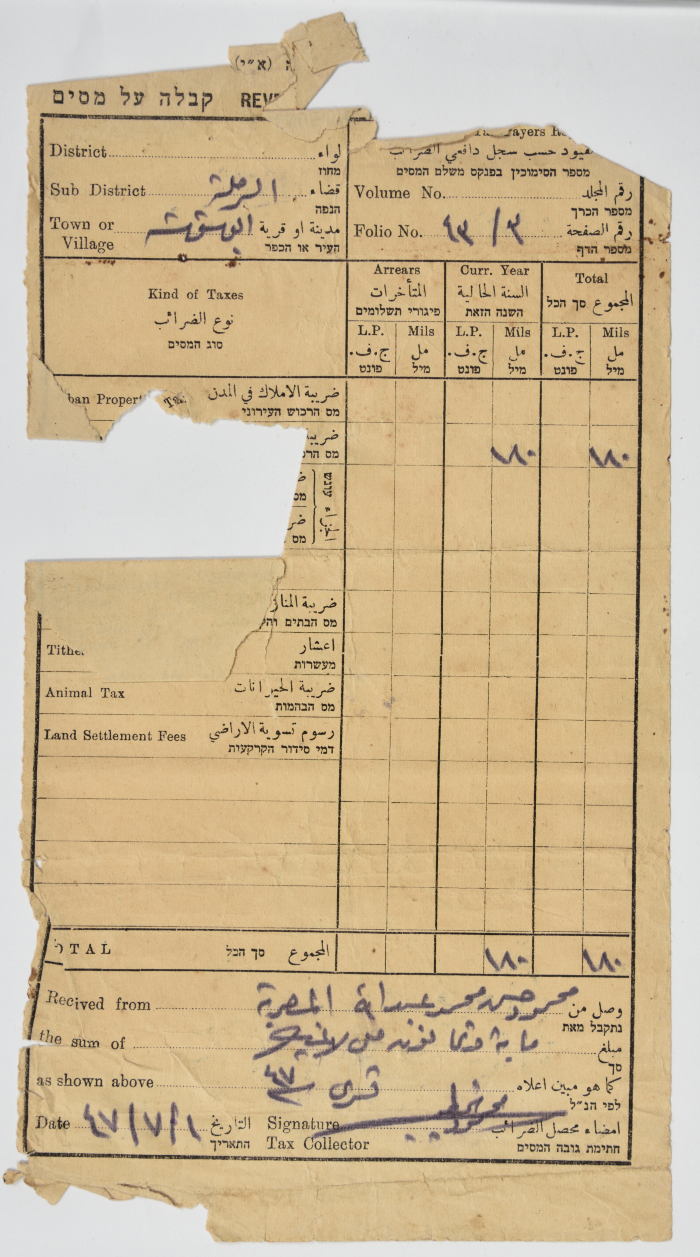 (א״י)
קבלה על מסים REV
District לواء
מחוז
Sub District الرملة قضاء
הנפה
Town or Village مدينة او قرية
העיר או הכפר
قيود حسب سجل دافعي الضرائب
מספר הסימוכין בפנקס משלם המסים
Volume No. رقم المجلد
מספר הכרך
Folio No. ٤٣/٣ رقم الصفحة
מספר הדף
Kind of Taxes
نوع الضرائب
סוג המסים
Arrears Curr. Year Total
المتأخرات السنة الحالية المجموع סך הכל
פיגורי תשלומים השנה הזאת
L.P. Mils L.P. Mils L.P. Mils
ج.ف. مل ج.ف. مل ج.ف. مل
פונט מיל פונט מיל פונט מיל
ban Propert ضريبة الاملاك في المدن
מס הרכוש העירוני
ضريبة ١٨٠ ١٨٠
מס הרכ
ضريبة المناز
מס הבתים
Tithe اعشار
מעשרות
Animal Tax ضريبة الحيوانات
מס הבהמות
Land Settlement Fees رسوم تسوية الاراضي
דמי סידור הקרקעות
OTAL סך הכל المجموع ١٨٠ ١٨٠
Recived from محمود حسن محمد عبدالله وصل من
נתקבל מאת
the sum of مبلغ
סך
as shown above ٤٧ كما هو مبين اعلاه
לפי הנ״ל
Date ٤٧/٧/١ التاريخ Signature امضاء محصل الضرائب
התאריך Tax Collector חתימת גובה המסים